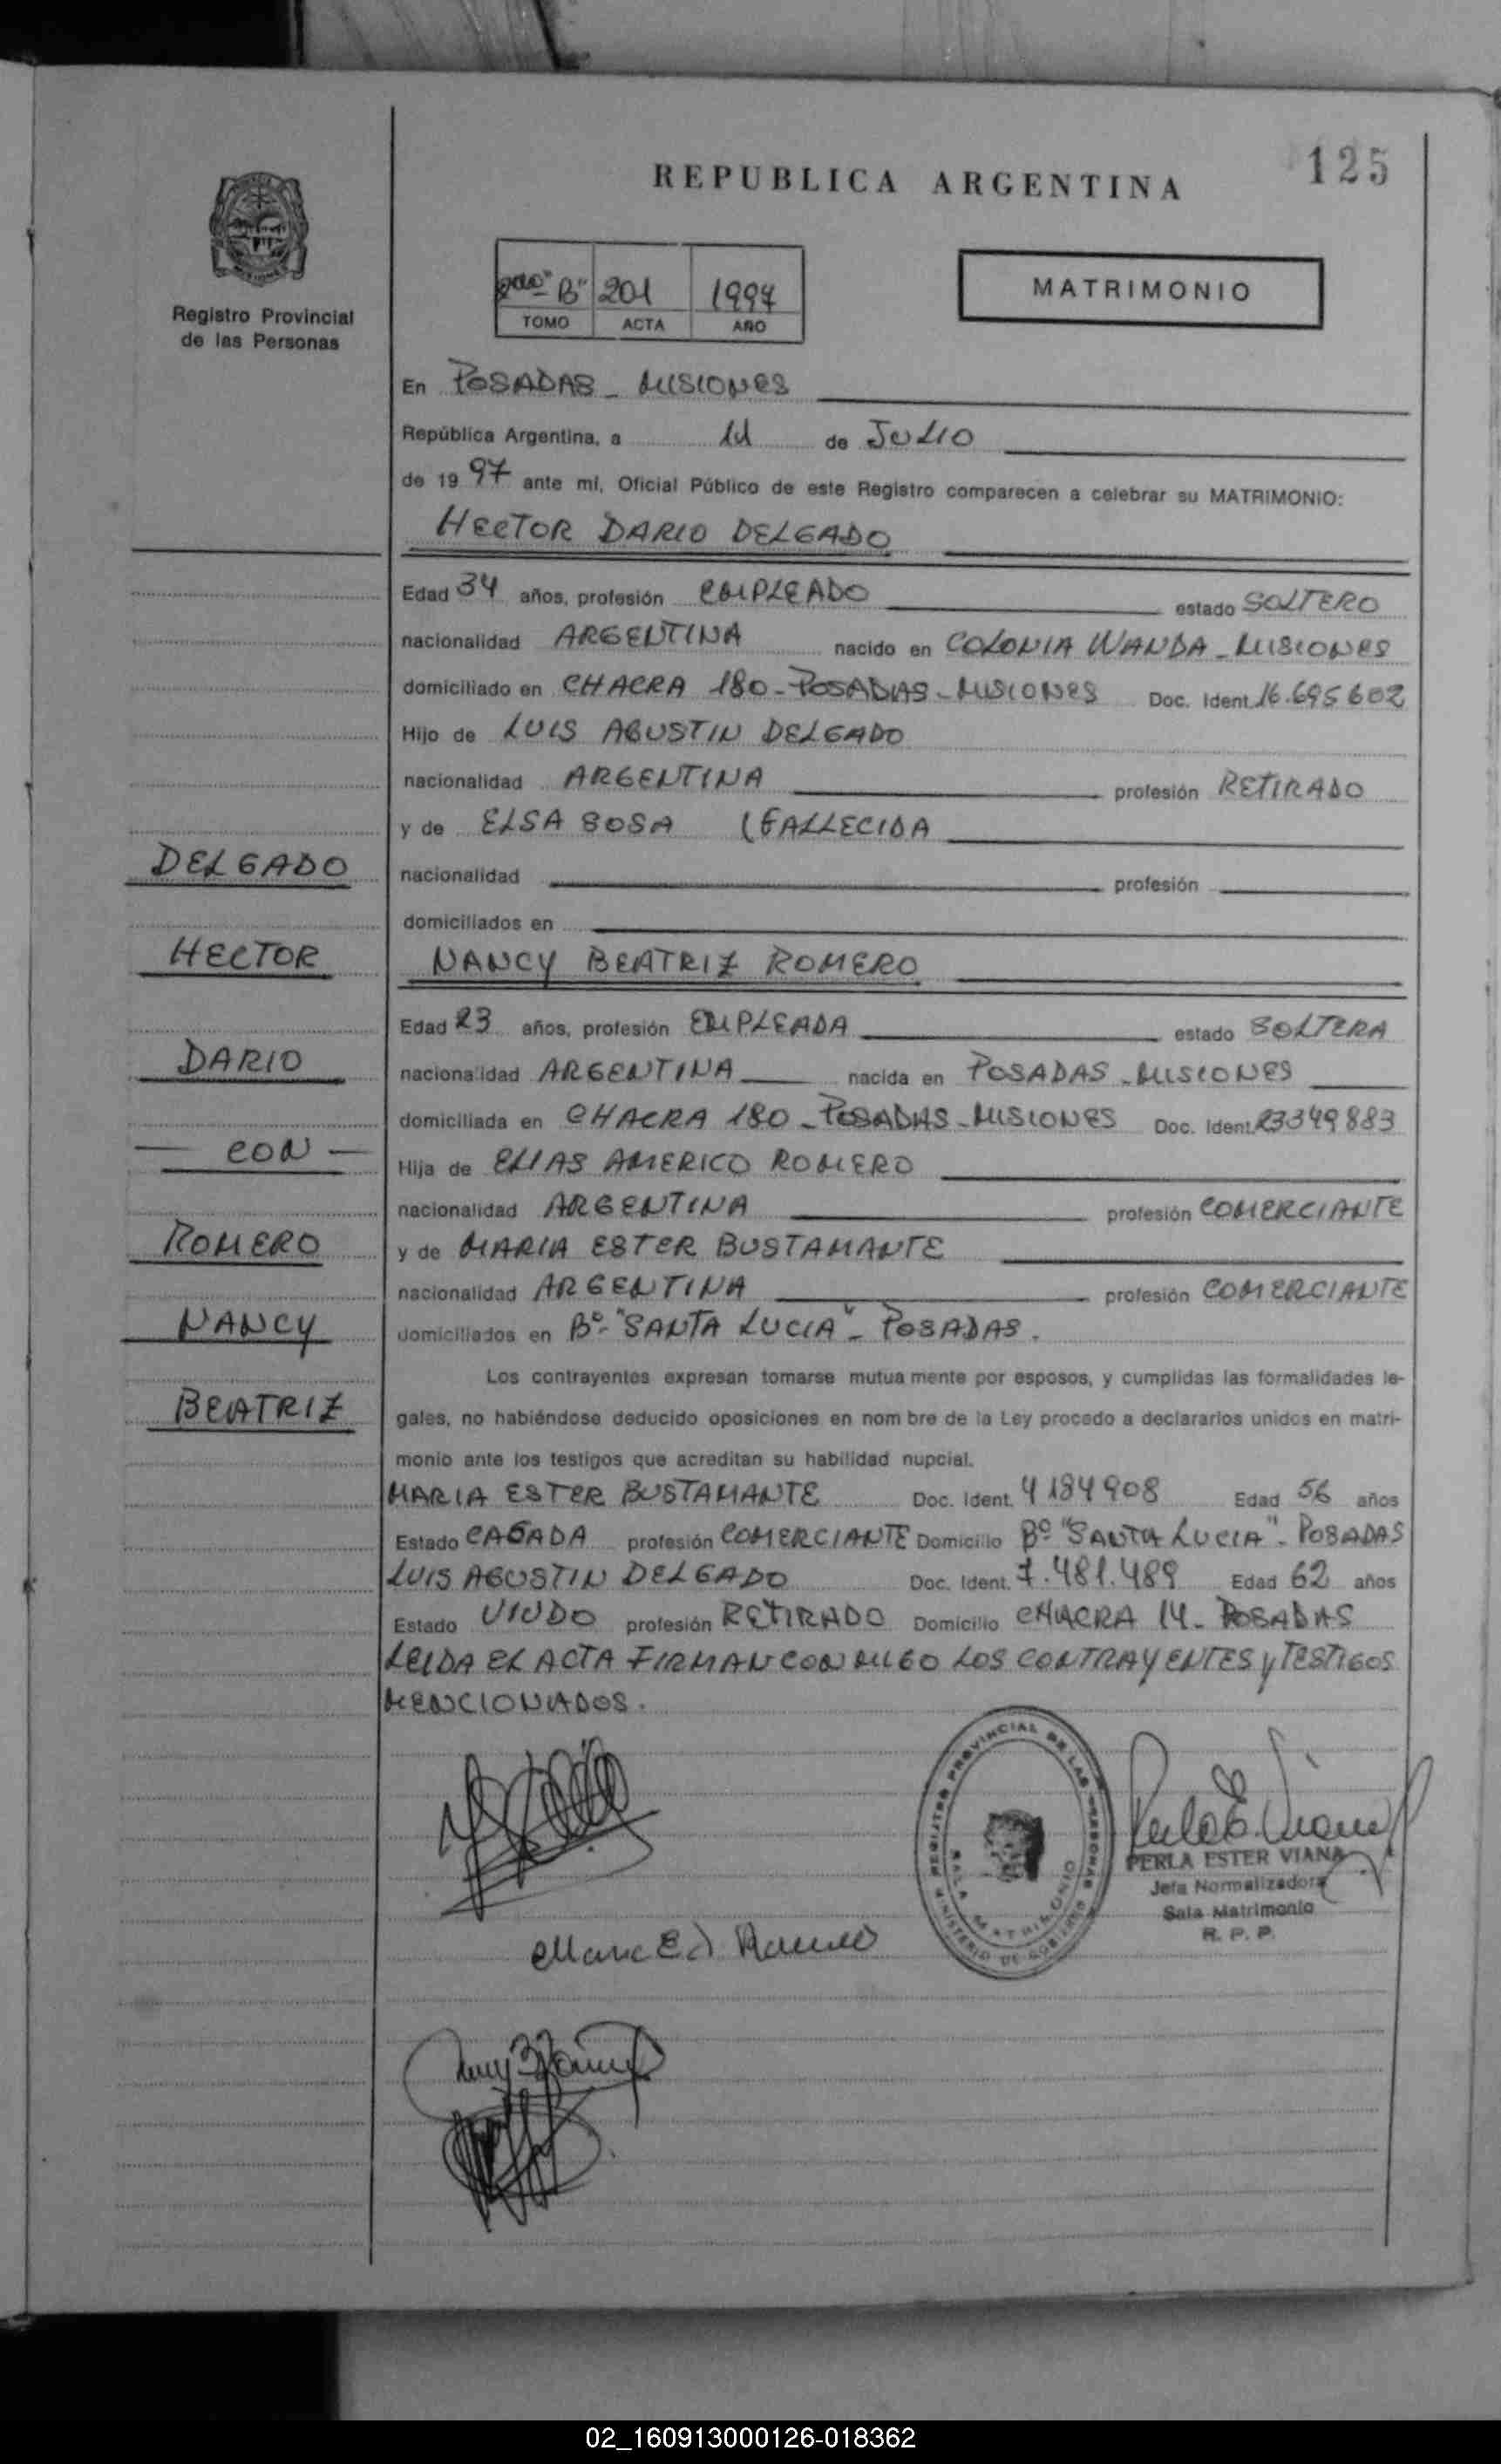 125
REPUBLICA ARGENTINA
Registro Provincial
de las Personas
2do "B" 201 1997
TOMO ACTA AÑO
MATRIMONIO
En POSADAS - MISIONES
República Argentina, a 11 de JULIO
de 19 97 ante mí, Oficial Público de este Registro comparecen a celebrar su MATRIMONIO:
HECTOR DARIO DELGADO
Edad 34 años, profesión EMPLEADO estado SOLTERO
nacionalidad ARGENTINA nacido en COLONIA WANDA - MISIONES
domiciliado en CHACRA 180 - POSADAS - MISIONES Doc. Ident. 16.695602
Hijo de LUIS AGUSTIN DELGADO
nacionalidad ARGENTINA profesión RETIRADO
y de ELSA SOSA (FALLECIDA
DELGADO
nacionalidad profesión
domiciliados en
HECTOR
NANCY BEATRIZ ROMERO
Edad 23 años, profesión EMPLEADA estado SOLTERA
DARIO
nacionalidad ARGENTINA nacida en POSADAS - MISIONES
domiciliada en CHACRA 180 - POSADAS - MISIONES Doc. Ident. 23349883
— CON —
Hija de ELIAS AMERICO ROMERO
nacionalidad ARGENTINA profesión COMERCIANTE
ROMERO
y de MARIA ESTER BUSTAMANTE
nacionalidad ARGENTINA profesión COMERCIANTE
NANCY
domiciliados en Bº- "SANTA LUCIA" - POSADAS.
Los contrayentes expresan tomarse mutua mente por esposos, y cumplidas las formalidades le-
BEATRIZ
gales, no habiéndose deducido oposiciones en nom bre de la Ley procedo a declararlos unidos en matri-
monio ante los testigos que acreditan su habilidad nupcial.
MARIA ESTER BUSTAMANTE Doc. Ident. 4184908 Edad 56 años
Estado CASADA profesión COMERCIANTE Domicilio Bº "SANTA LUCIA" - POSADAS
LUIS AGUSTIN DELGADO Doc. Ident. 7.481.489 Edad 62 años
Estado VIUDO profesión RETIRADO Domicilio CHACRA 14 - POSADAS
LEIDA EL ACTA FIRMAN CONMIGO LOS CONTRAYENTES y TESTIGOS
MENCIONADOS.
REGISTRO PROVINCIAL DE LAS PERSONAS
SALA MATRIMONIO
MINISTERIO DE GOBIERNO
PERLA ESTER VIANA
Jefa Normalizadora
Sala Matrimonio
R. P. P.
02_160913000126-018362